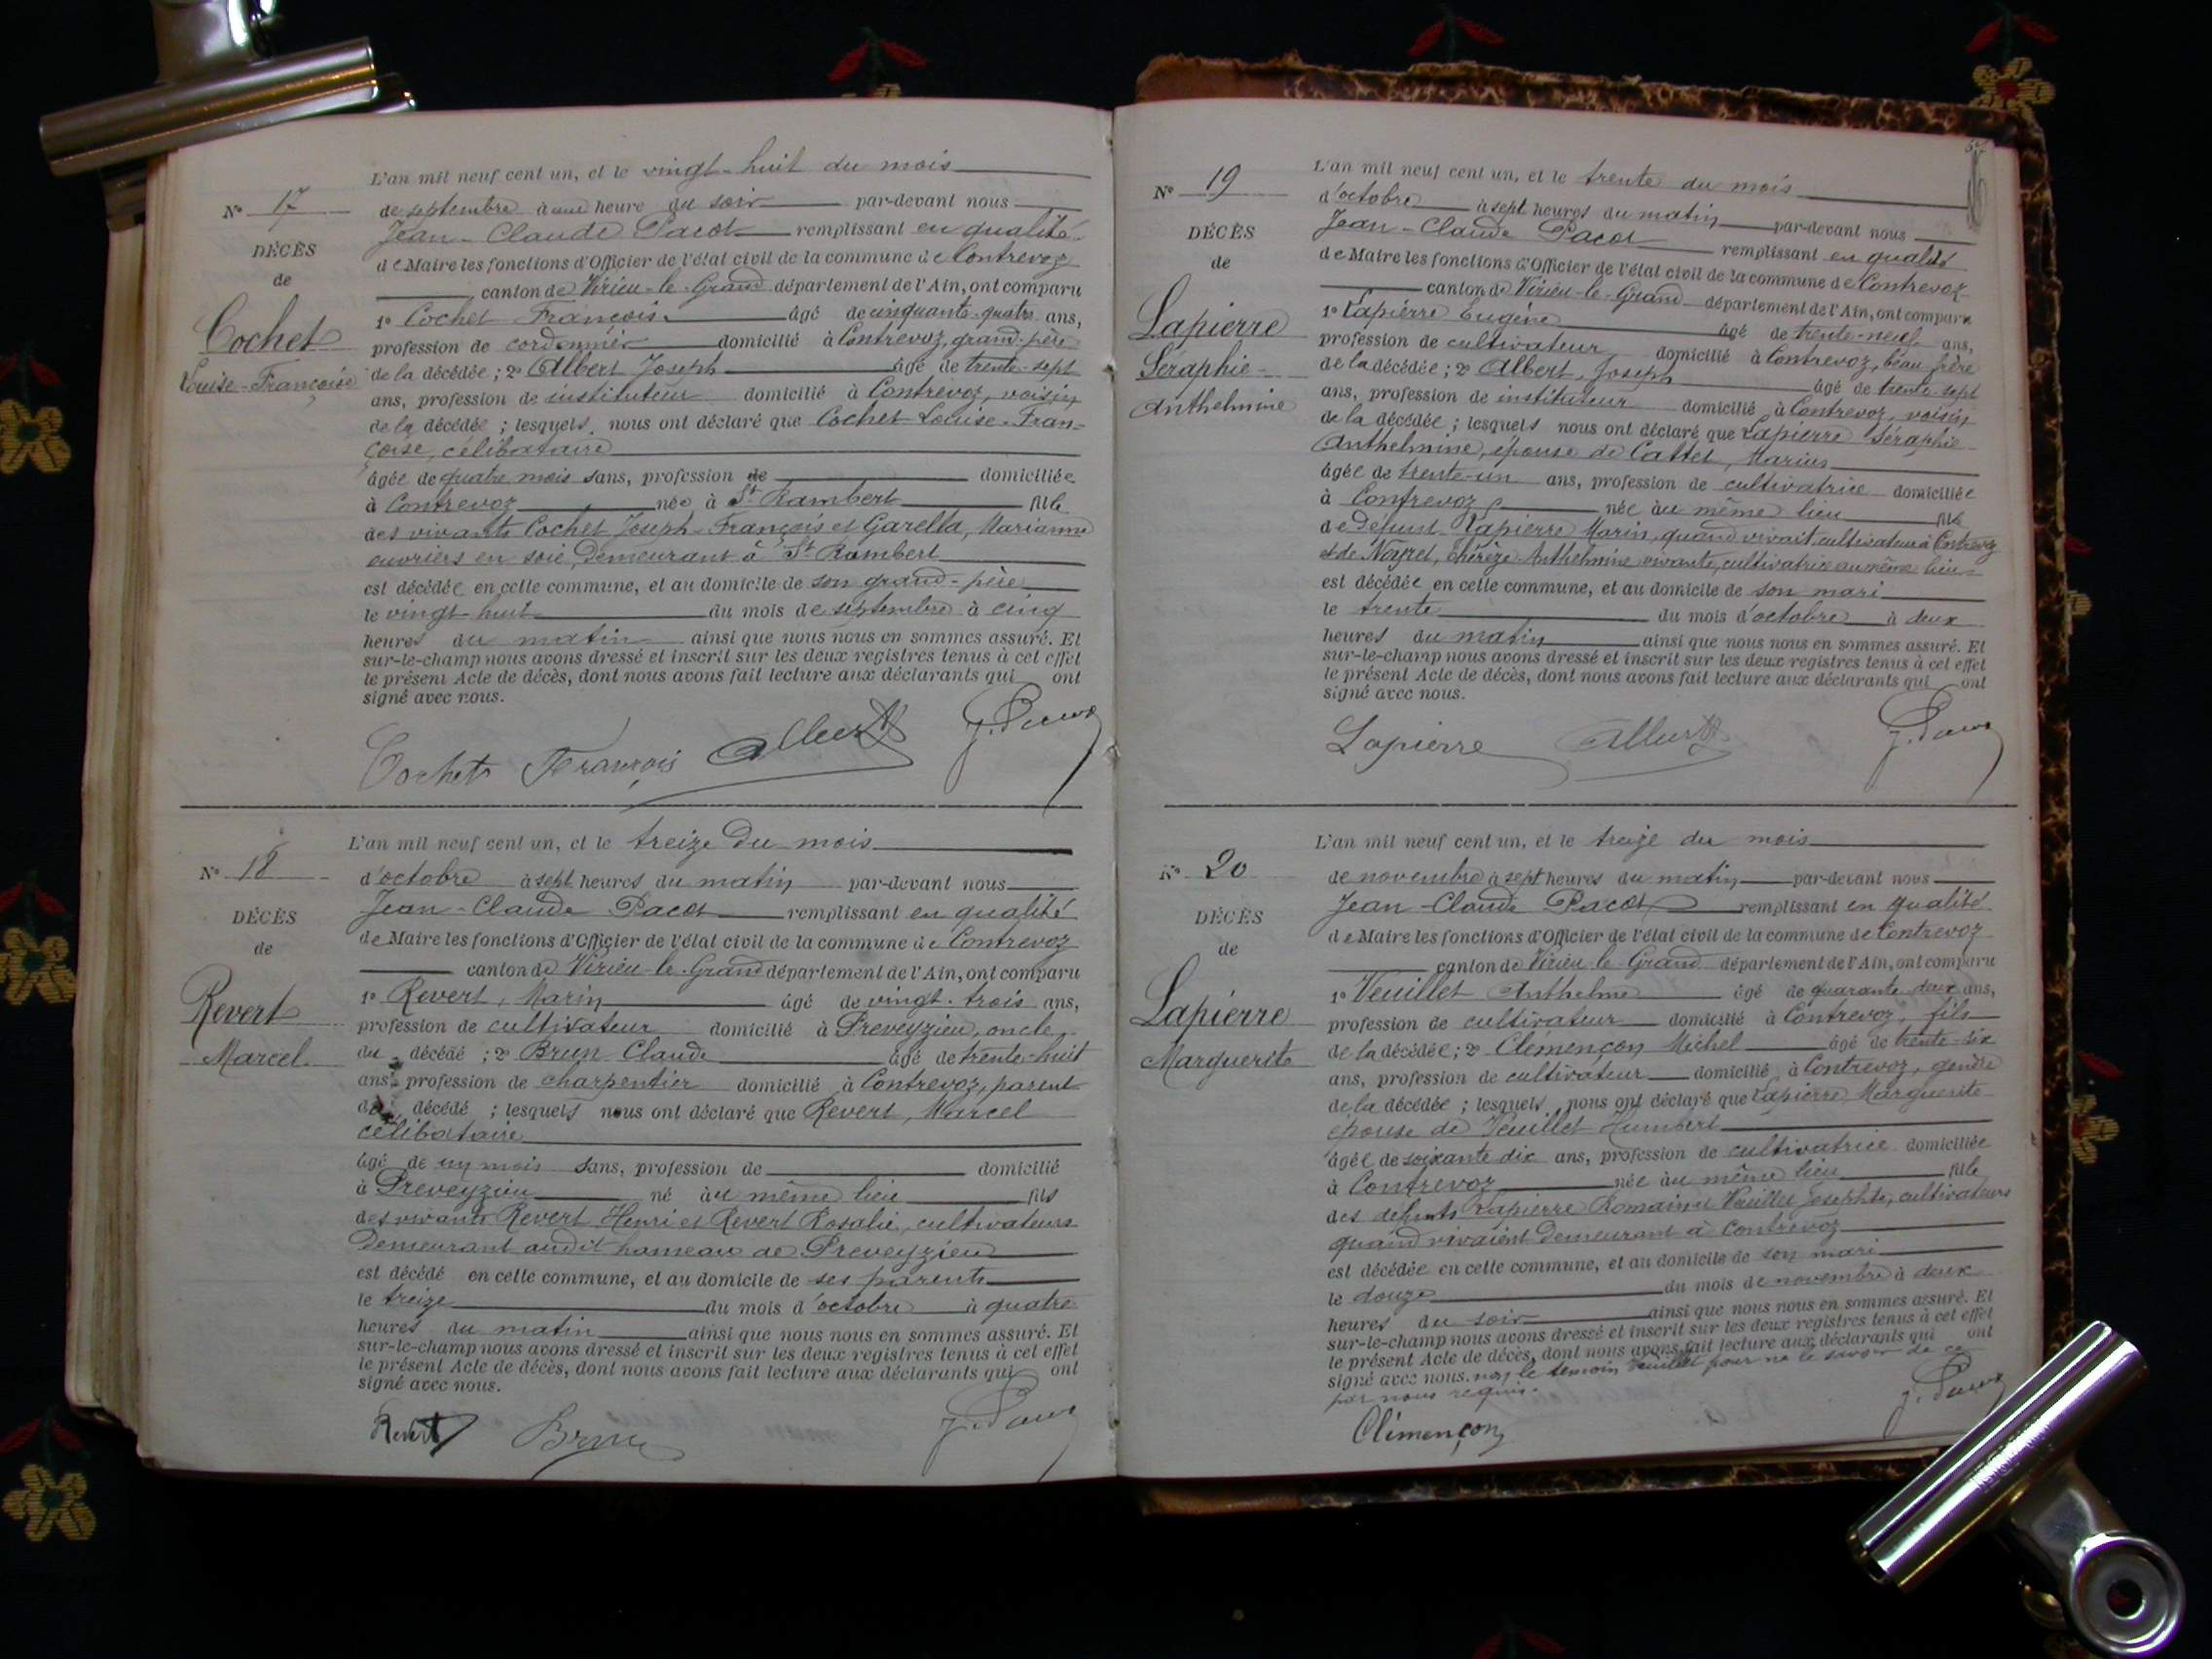 L'an mil neuf cent un, et le vingt-huit du mois
Nº 17
de septembre à une heure du soir par-devant nous
Jean-Claude Pacot remplissant en qualité
DÉCÈS
de Maire les fonctions d'Officier de l'état civil de la commune de Contrevoz
de
canton de Virieu-le-Grand département de l'Ain, ont comparu
Cochet
1º Cochet François âgé de cinquante-quatre ans,
profession de cordonnier domicilié à Contrevoz, grand-père
Louise-Françoise
de la décédée ; 2º Albert Joseph âgé de trente-sept
ans, profession de instituteur domicilié à Contrevoz, voisin
de la décédée ; lesquels nous ont déclaré que Cochet Louise-Fran=
çoise, célibataire
âgée de quatre mois sans, profession de domiciliée
à Contrevoz née à St Rambert fille
des vivants Cochet Joseph-François et Garella, Marianne
ouvriers en soie, demeurant à St Rambert
est décédée en cette commune, et au domicile de son grand-père
le vingt-huit du mois de septembre à cinq
heures du matin ainsi que nous nous en sommes assuré. Et
sur-le-champ nous avons dressé et inscrit sur les deux registres tenus à cet effet
le présent Acte de décès, dont nous avons fait lecture aux déclarants qui ont
signé avec nous.
Cochet François Albert J. Pacot
L'an mil neuf cent un, et le treize du mois
Nº 18
d'octobre à sept heures du matin par-devant nous
Jean-Claude Pacot remplissant en qualité
DÉCÈS
de Maire les fonctions d'Officier de l'état civil de la commune de Contrevoz
de
canton de Virieu-le-Grand département de l'Ain, ont comparu
Revert
1º Revert, Marin âgé de vingt-trois ans,
profession de cultivateur domicilié à Preveyzieu, oncle
Marcel
du décédé ; 2º Brun Claude âgé de trente-huit
ans, profession de charpentier domicilié à Contrevoz, parent
du décédé ; lesquels nous ont déclaré que Revert, Marcel
célibataire
âgé de un mois sans, profession de domicilié
à Preveyzieu né au même lieu fils
des vivants Revert Henri et Revert Rosalie, cultivateurs
demeurant audit hameau de Preveyzieu
est décédé en cette commune, et au domicile de ses parents
le treize du mois d'octobre à quatre
heures du matin ainsi que nous nous en sommes assuré. Et
sur-le-champ nous avons dressé et inscrit sur les deux registres tenus à cet effet
le présent Acte de décès, dont nous avons fait lecture aux déclarants qui ont
signé avec nous.
Revert Brun J. Pacot
L'an mil neuf cent un, et le trente du mois
Nº 19
d'octobre à sept heures du matin par-devant nous
Jean-Claude Pacot remplissant en qualité
DÉCÈS
de Maire les fonctions d'Officier de l'état civil de la commune de Contrevoz
de
canton de Virieu-le-Grand département de l'Ain, ont comparu
Lapierre
1º Lapierre Eugène âgé de trente-neuf ans,
profession de cultivateur domicilié à Contrevoz, beau frère
Séraphie-
de la décédée ; 2º Albert, Joseph âgé de trente sept
Anthelmine
ans, profession de instituteur domicilié à Contrevoz, voisin
de la décédée ; lesquels nous ont déclaré que Lapierre Séraphie
Anthelmine, épouse de Cattet, Marius
âgée de trente-un ans, profession de cultivatrice domiciliée
à Contrevoz née au même lieu fille
de défunt Lapierre Marin, quand vivait cultivateur à Contrevoz
et de Neyret, Thérèze Anthelmine vivante, cultivatrice au même lieu
est décédée en cette commune, et au domicile de son mari
le trente du mois d'octobre à deux
heures du matin ainsi que nous nous en sommes assuré. Et
sur-le-champ nous avons dressé et inscrit sur les deux registres tenus à cet effet
le présent Acte de décès, dont nous avons fait lecture aux déclarants qui ont
signé avec nous.
Lapierre Albert J. Pacot
L'an mil neuf cent un, et le treize du mois
Nº 20
de novembre à sept heures du matin par-devant nous
Jean-Claude Pacot remplissant en qualité
DÉCÈS
de Maire les fonctions d'Officier de l'état civil de la commune de Contrevoz
de
canton de Virieu-le-Grand département de l'Ain, ont comparu
Lapierre
1º Veuillet Anthelme âgé de quarante-deux ans,
profession de cultivateur domicilié à Contrevoz, fils
Marguerite
de la décédée ; 2º Clémençon Michel âgé de trente-six
ans, profession de cultivateur domicilié à Contrevoz, gendre
de la décédée ; lesquels nous ont déclaré que Lapierre Marguerite
épouse de Veuillet Humbert
âgée de soixante dix ans, profession de cultivatrice domiciliée
à Contrevoz née au même lieu fille
des défunts Lapierre Romain et Veuillet Josephte, cultivateurs
quand vivaient demeurant à Contrevoz
est décédée en cette commune, et au domicile de son mari
le douze du mois de novembre à deux
heures du soir ainsi que nous nous en sommes assuré. Et
sur-le-champ nous avons dressé et inscrit sur les deux registres tenus à cet effet
le présent Acte de décès, dont nous avons fait lecture aux déclarants qui ont
signé avec nous, non le témoin Veuillet pour ne le savoir de ce
par nous requis.
Clémençon J. Pacot